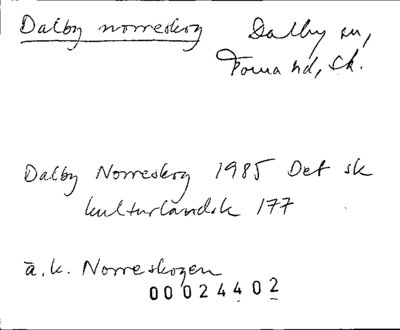 Dalby norreskog Dalby sn,
Torna hd, Sk.
Dalby Norreskog 1985 Det sk
kulturlandsk 177
ä.k. Norreskogen
00024402